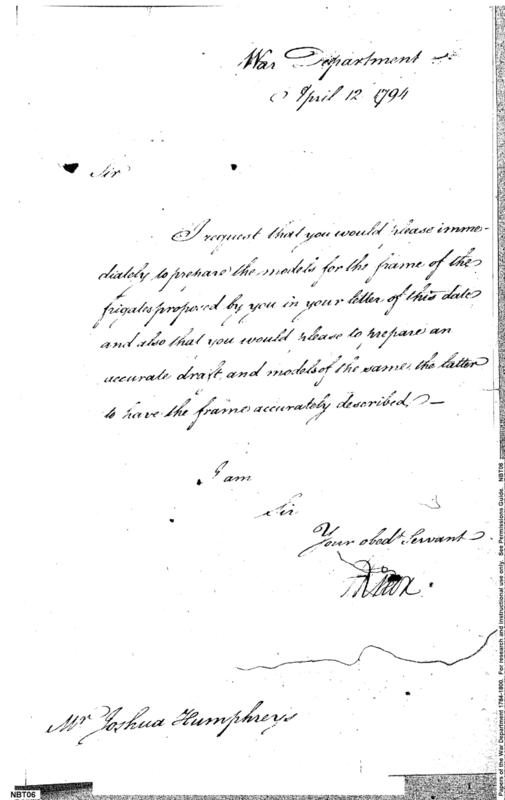 War Department
April 12 1794
Sir
I request that you would please imme-
diately to prepare the models for the frame of the
frigates proposed by you in your letter of this date
and also that you would please to prepare an
accurate draft, and models of the same, the latter
to have the frame accurately described. —
I am
Sir
Your obedt Servant
HKnox.
Mr Joshua Humphreys
NBT06
1
Papers of the War Department 1784-1800. For research and instructional use only. See Permissions Guide. NBT06